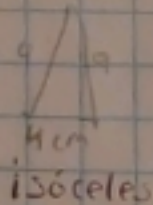 9 9
4 cm
isóceles